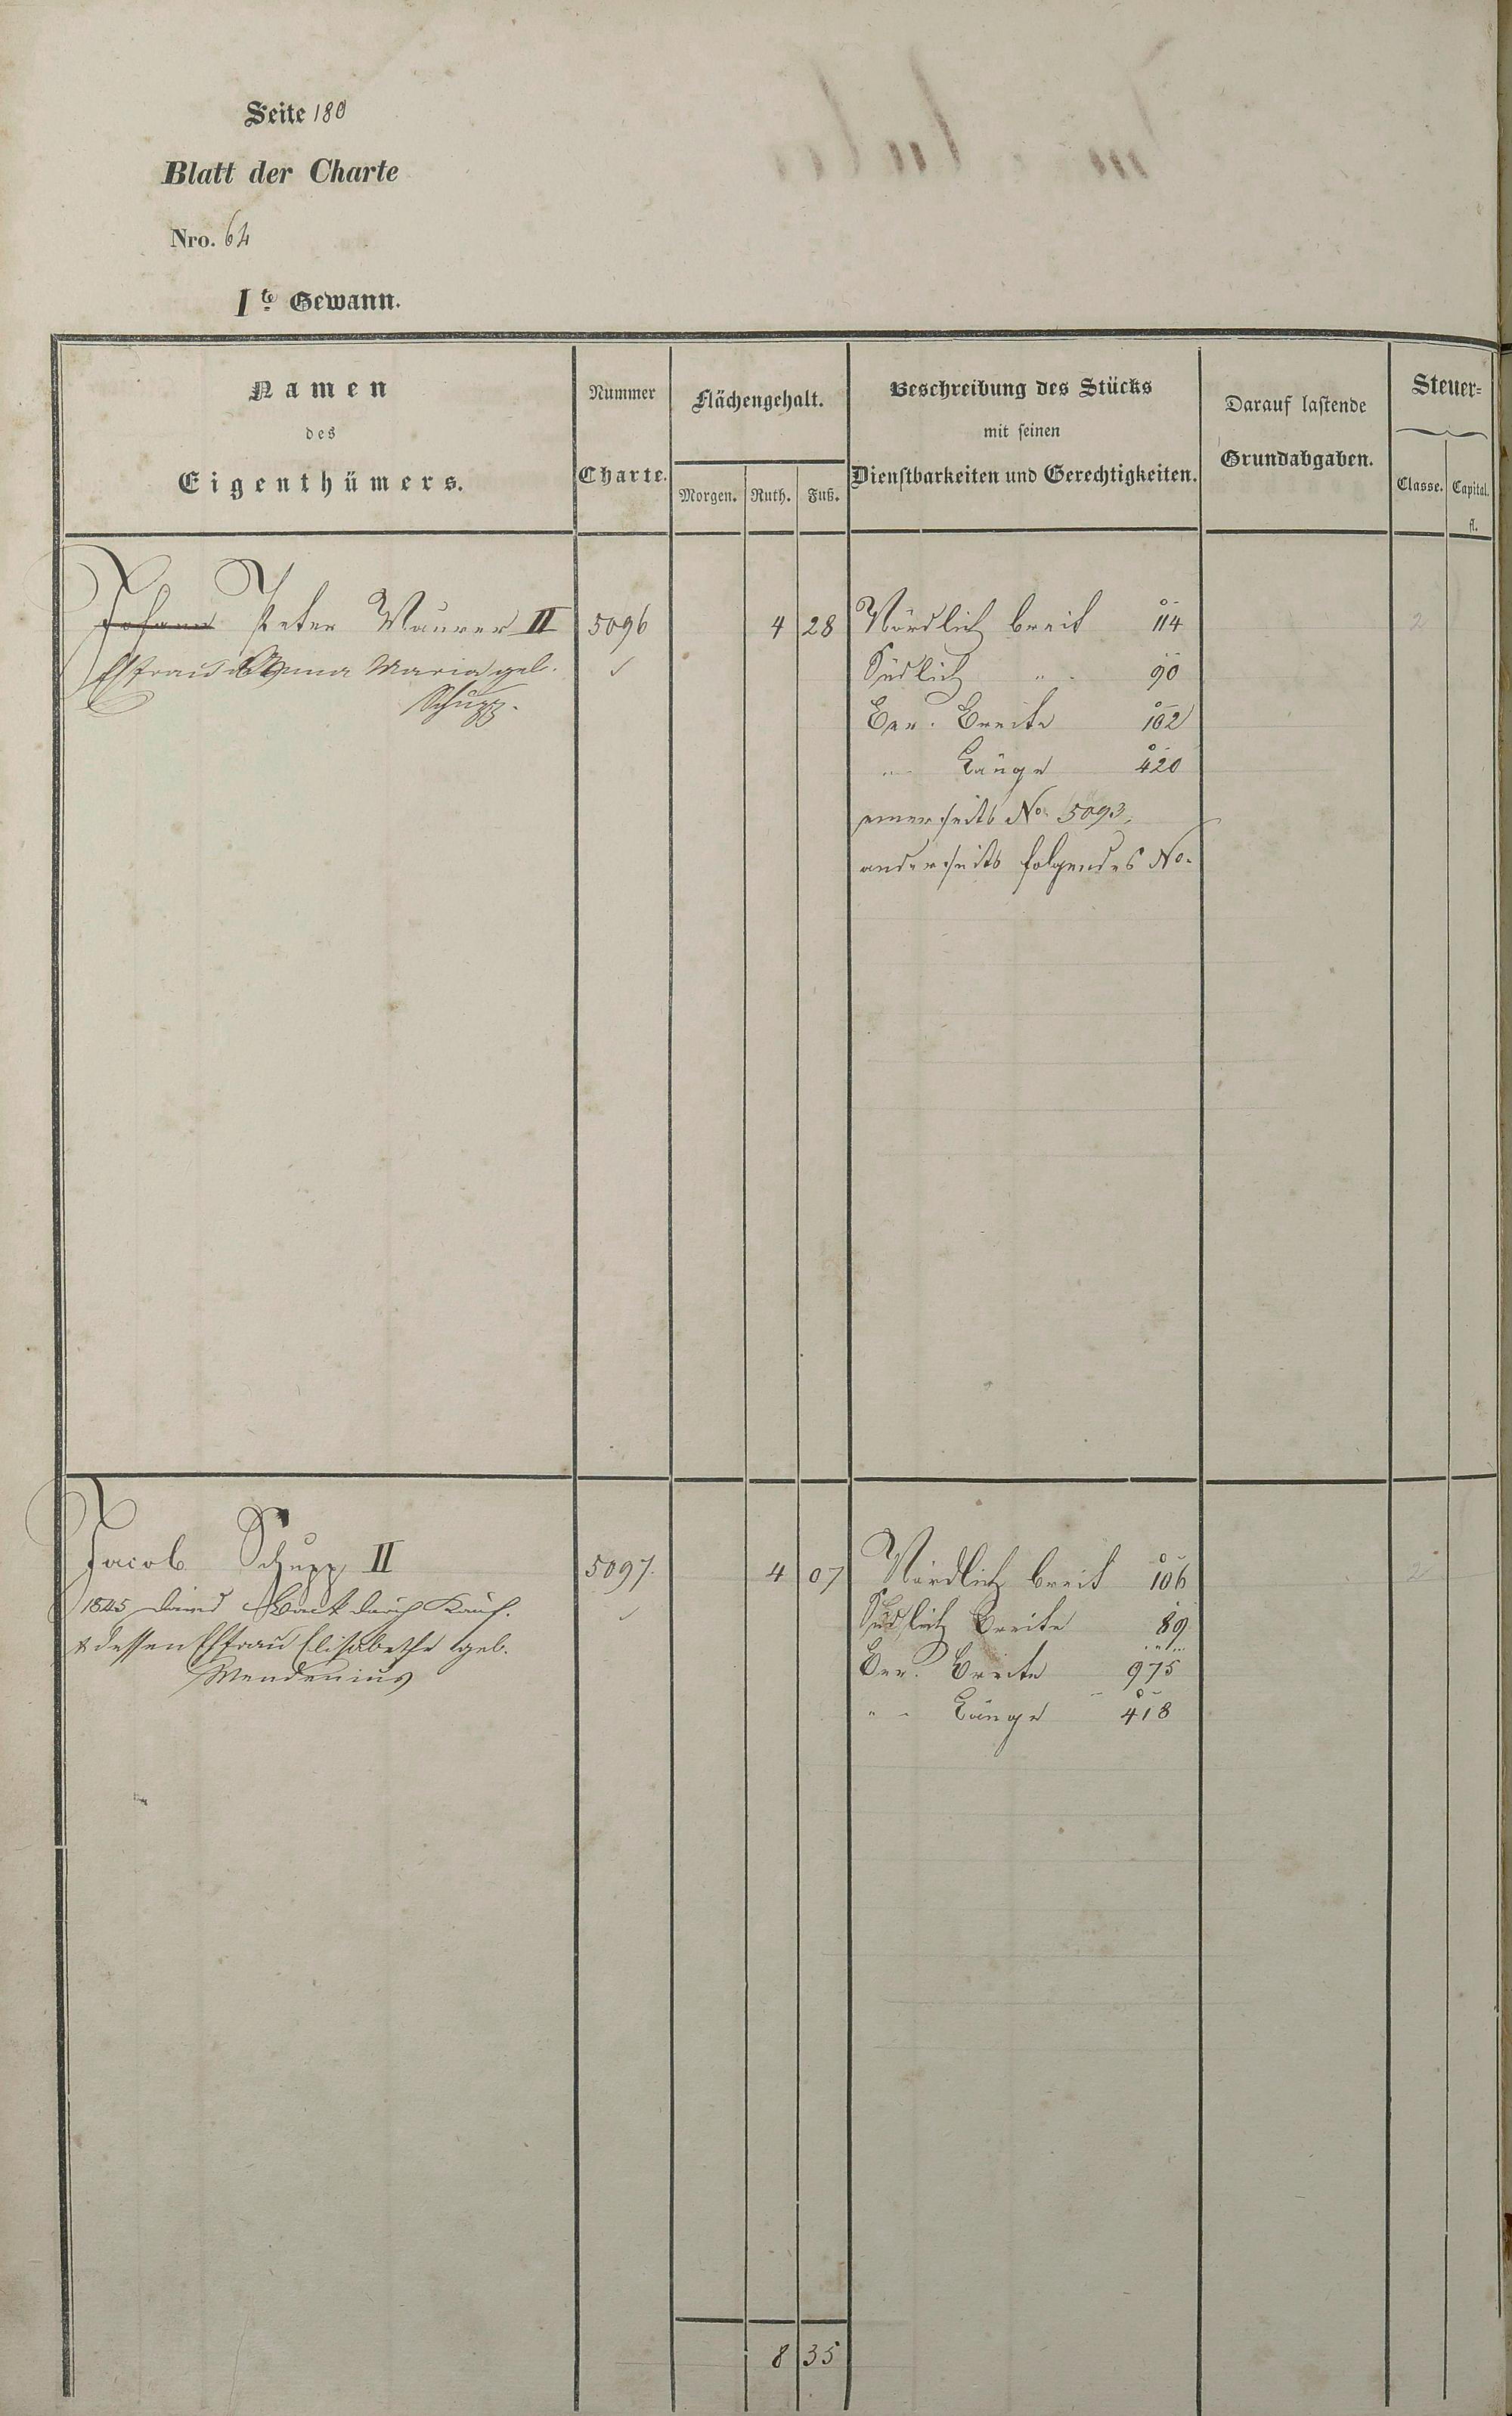 Seite 180
Blatt der Charte
Nro. 64
Ite Gewann.
Namen
des
Eigenthümers.
Nummer
Charte.
Flächengehalt.
Morgen. Ruth. Fuß.
Beschreibung des Stücks
mit seinen
Dienstbarkeiten und Gerechtigkeiten.
Darauf lastende
Grundabgaben.
Steuer-
Classe. Capital.
fl.
Johann Peter Maurer II 5096 4 28 Nördlich breit 114 2
Ehefrau Anna Maria geb. Südlich " 90
Schupp. Ber. Breite 102
" Länge 420
einerseits No. 5093,
anderseits folgendes No.
Jacob Schupp II 5097. 4 07 Nördlich breit 106 2
1845 David durch Kauf. Südlich Breite 89
& dessen Ehefrau Elisabethe geb. Ber. Breite 975
Mendenius " Länge 418
8 35